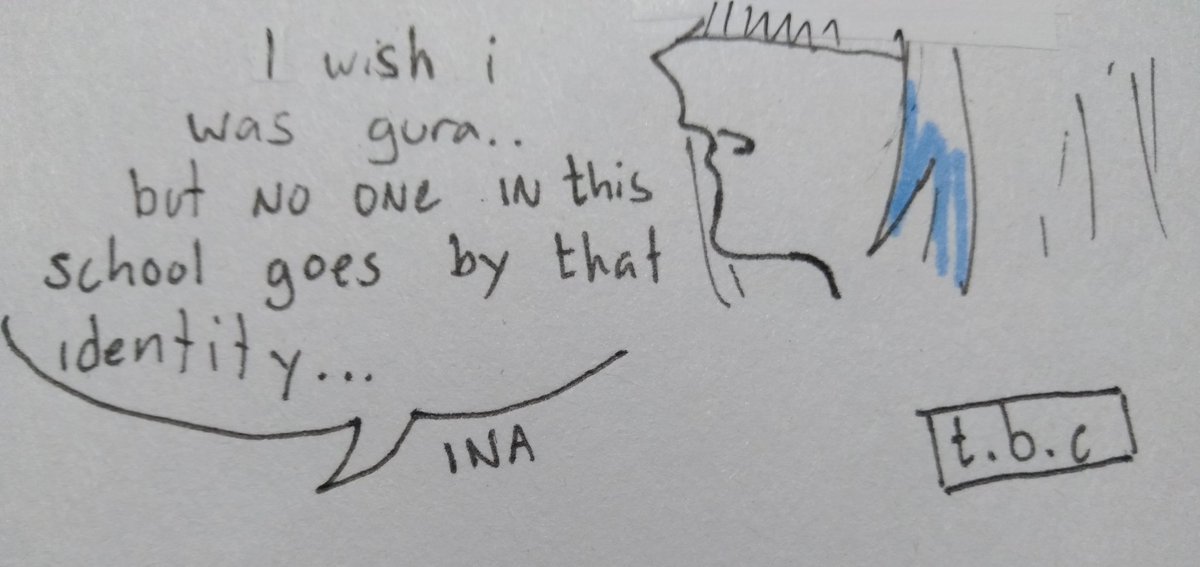 I wish i
was gura..
but NO ONE IN this
school goes by that
identity...
INA
t.b.c